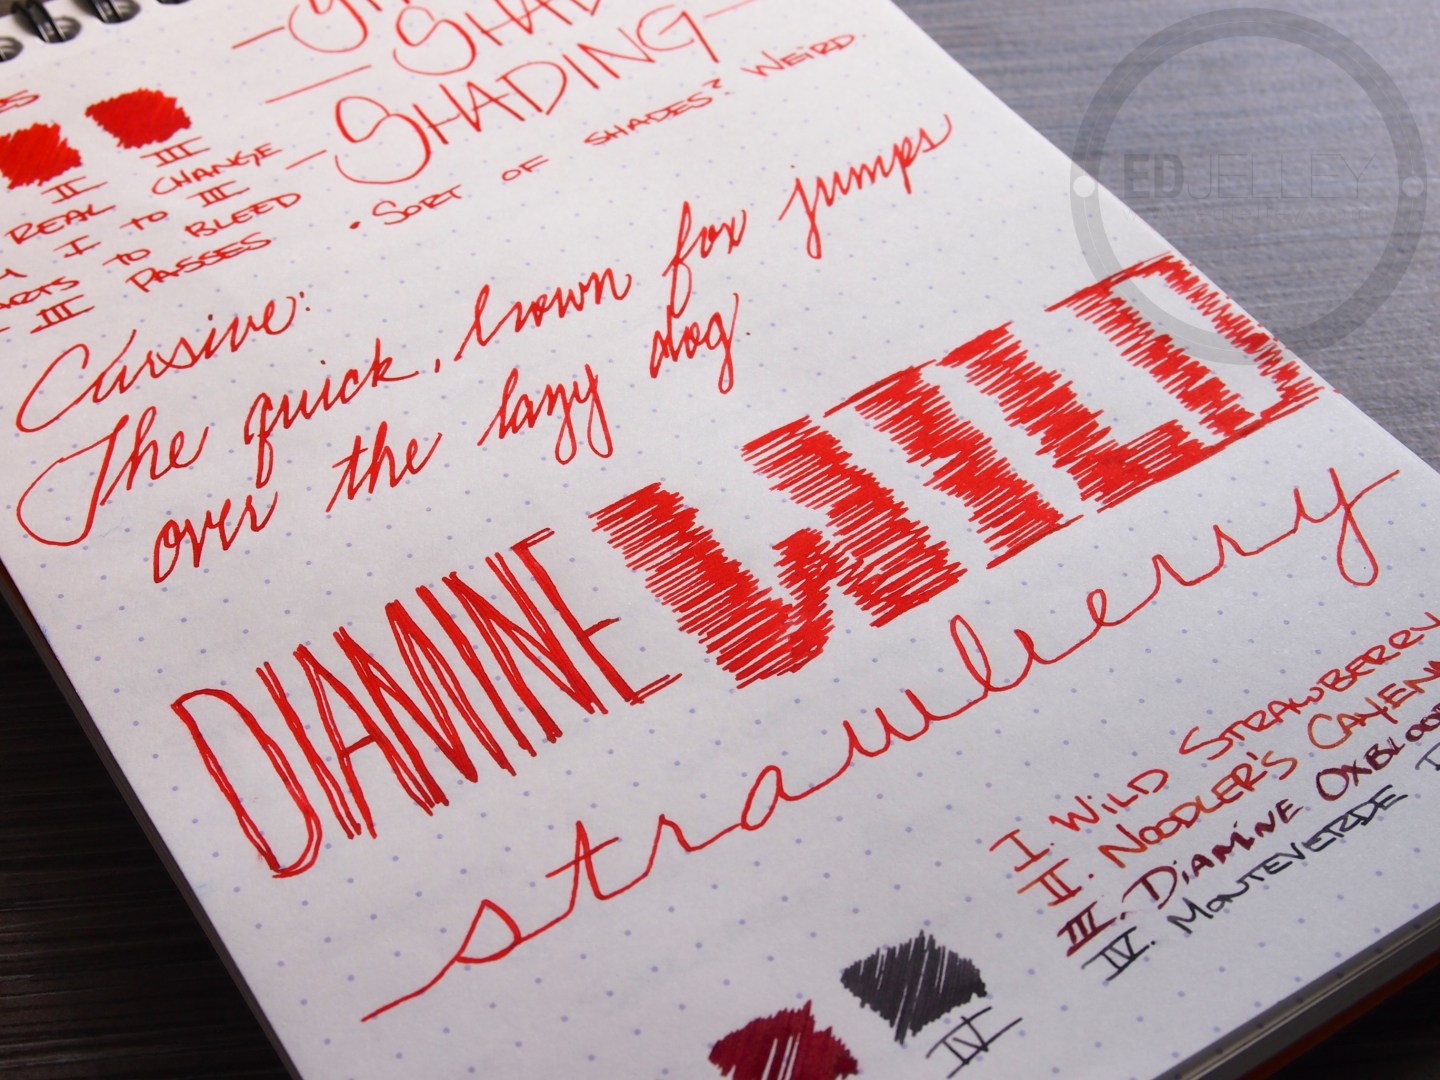 SHADING
II III
REAL CHANGE
I TO III
TO BLEED
III PASSES
• SORT OF SHADES? WEIRD
Cursive:
The quick, brown fox jumps
over the lazy dog.
DIAMINE WILD
strawberry
I. WILD STRAWBERRY
II. NOODLER'S
III. DIAMINE
IV. MONTEVERDE
IV
EDJELLEY